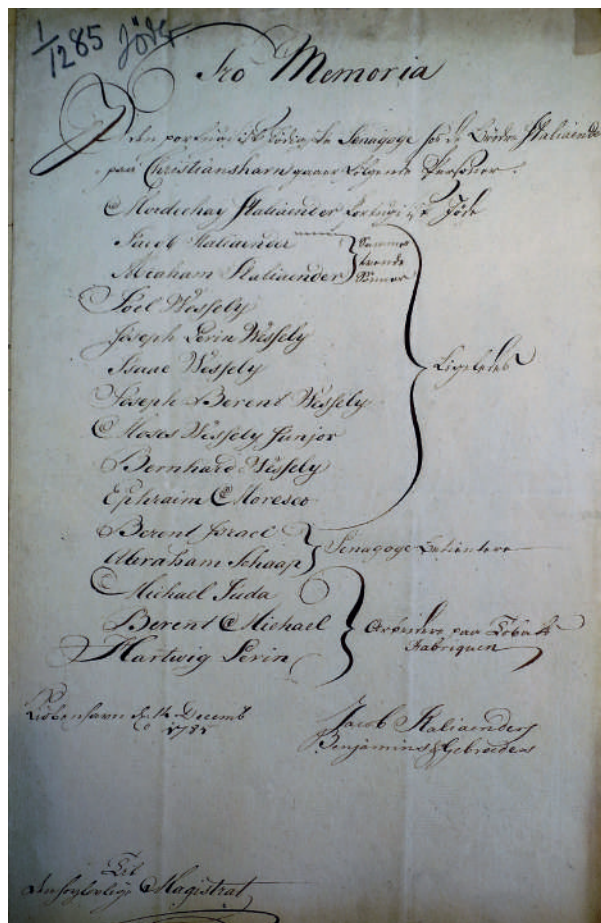 1/1285 Jöder
Pro Memoria
I den portugisisk jödiske Senagoge hos de Brödre Italiaender
paa Christianshavn gaaer fölgende Personer.
Mordechay Italiaender Portugisisk Jöde
Jacob Italiaender
Abraham Italiaender
Sammes
tvende
Sönner
Joel Wessely
Joseph Levin Wessely
Isaac Wessely
Joseph Berent Wessely
Moses Wessely Junjor
Bernhard Wessely
Ephraim Moresco
Ligeledes
Berent Israel
Abraham Schaap
Senagoge Betientere
Michael Juda
Berent Michael
Hartwig Levin
Arbeidere paa Tobaks
Fabriquen
Kiöbenhavn Decemb
Jacob Italiaender
Benjamins & Gebroeders
Til
Magistrat